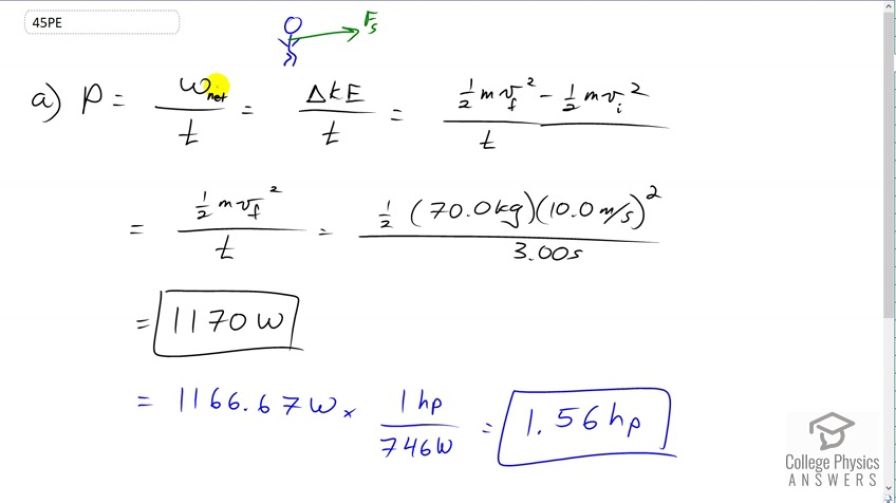 45PE
F_s
a) P = W_net / t = ΔKE / t = (½ m v_f² - ½ m v_i²) / t
= ½ m v_f² / t = ½ (70.0kg)(10.0 m/s)² / 3.00s
= 1170 W
= 1166.67 W × 1 hp / 746 W = 1.56 hp
College Physics
ANSWERS